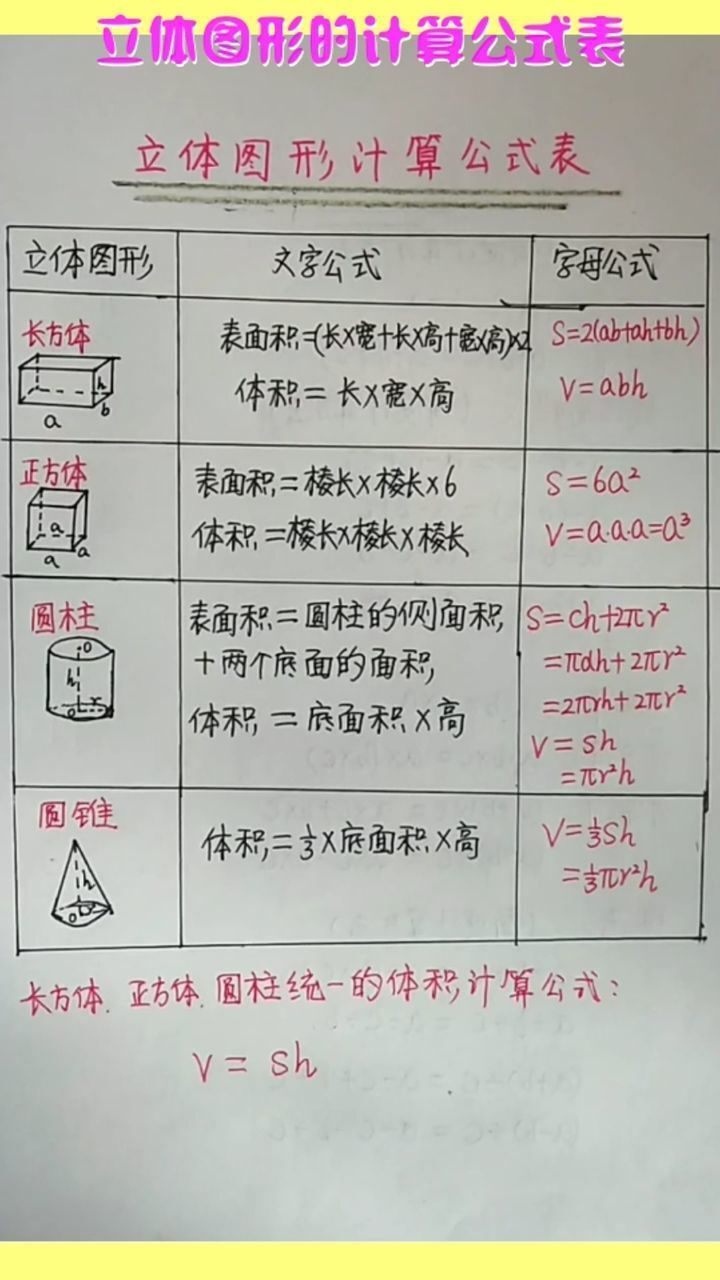 立体图形的计算公式表
立体图形计算公式表
立体图形 文字公式 字母公式
长方体
表面积=(长×宽+长×高+宽×高)×2
体积=长×宽×高
S=2(ab+ah+bh)
V=abh
h
b
a
正方体
表面积=棱长×棱长×6
体积=棱长×棱长×棱长
S=6a²
V=a·a·a=a³
a
a
a
圆柱
表面积=圆柱的侧面积
+两个底面的面积
体积=底面积×高
S=Ch+2πr²
=πdh+2πr²
=2πrh+2πr²
V=sh
=πr²h
O
h
r
圆锥
体积=⅓×底面积×高
V=⅓sh
=⅓πr²h
h
长方体、正方体、圆柱统一的体积计算公式:
V=sh